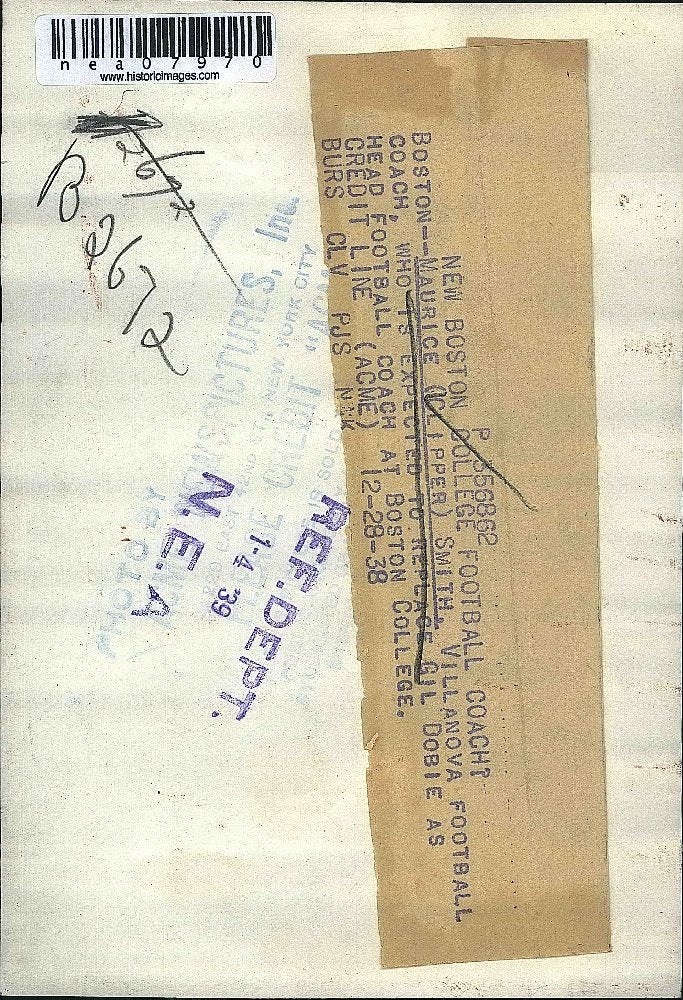 nea07970
www.historicimages.com
2672
B2672
P 356862
NEW BOSTON COLLEGE FOOTBALL COACH?
BOSTON--MAURICE (CLIPPER) SMITH, VILLANOVA FOOTBALL
COACH, WHO IS EXPECTED TO REPLACE GIL DOBIE AS
HEAD FOOTBALL COACH AT BOSTON COLLEGE.
CREDIT LINE (ACME) 12-28-38
BURS CLV PJS
REF.DEPT.
1-4 39
N.E.A
PHOTO BY
PICTURES, Inc.
NEW YORK CITY
CREDIT "ACME